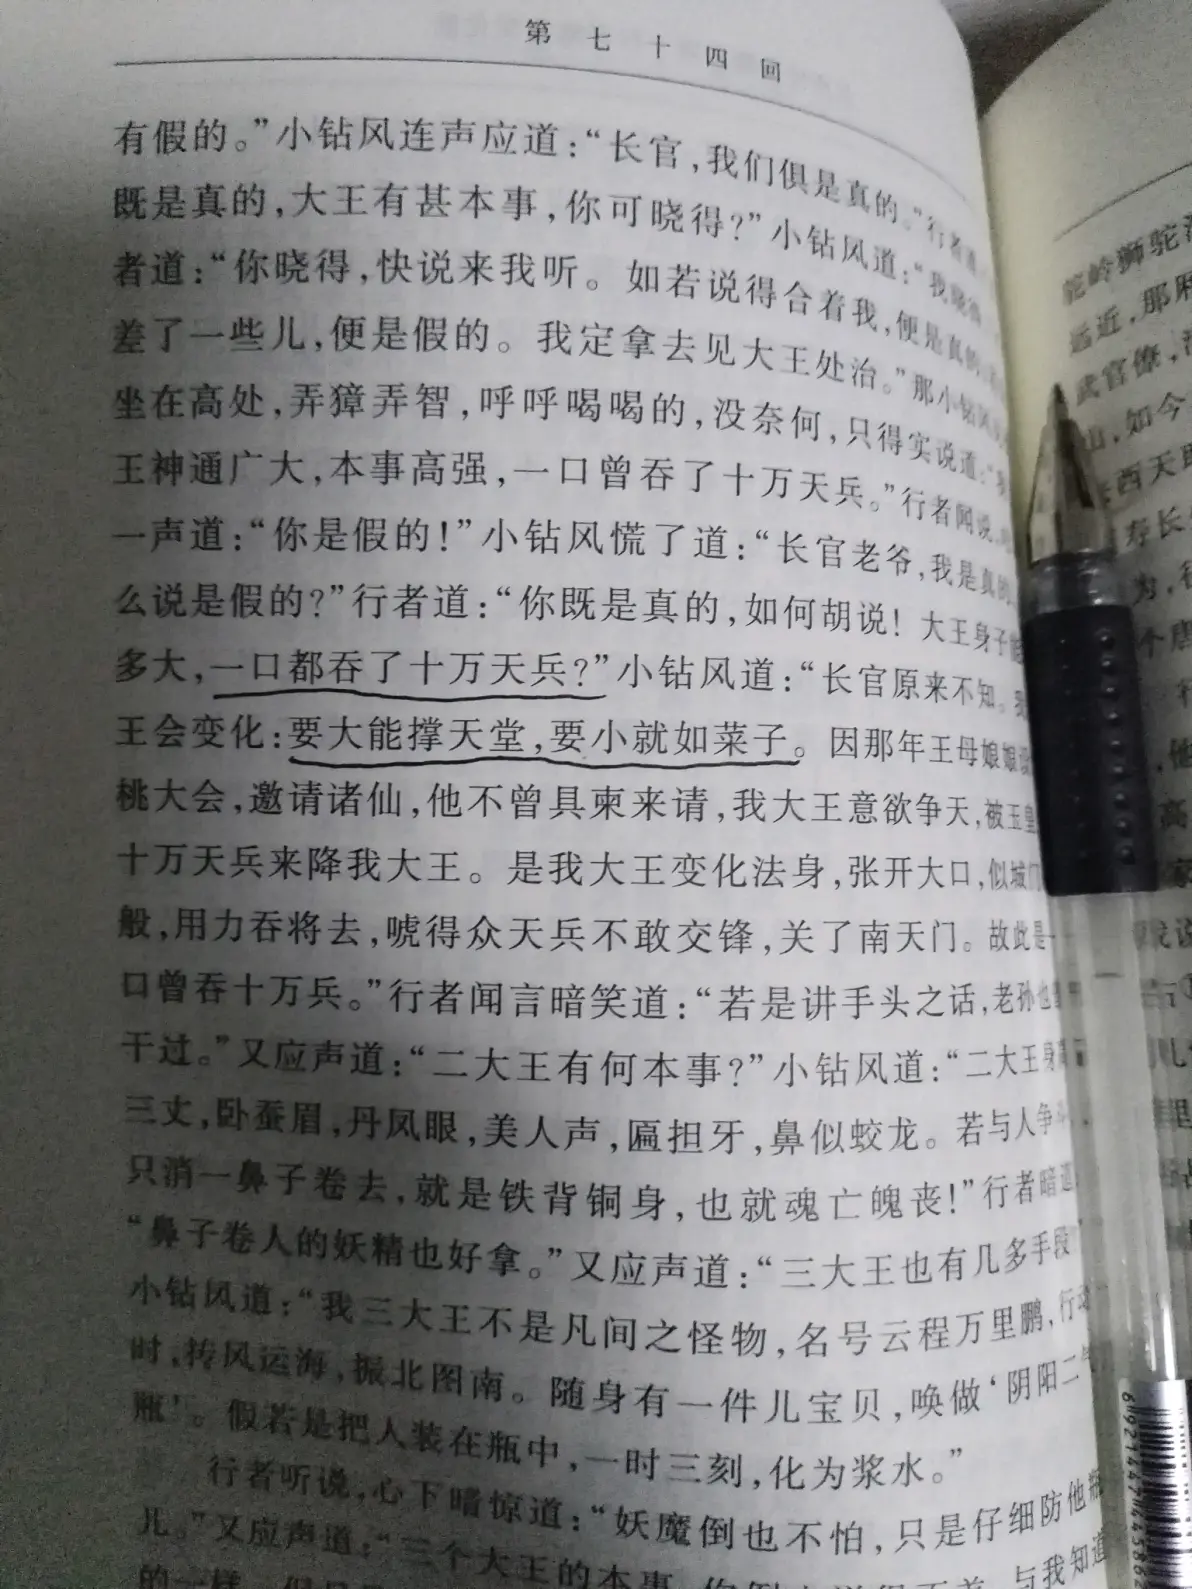 第七十四回
有假的。”小钻风连声应道：“长官，我们俱是真的。”行者道
既是真的，大王有甚本事，你可晓得？”小钻风道：“我晓得
者道：“你晓得，快说来我听。如若说得合着我，便是真的，
差了一些儿，便是假的。我定拿去见大王处治。”那小钻风
坐在高处，弄獐弄智，呼呼喝喝的，没奈何，只得实说道：
王神通广大，本事高强，一口曾吞了十万天兵。”行者闻说，
一声道：“你是假的！”小钻风慌了道：“长官老爷，我是真的，
么说是假的？”行者道：“你既是真的，如何胡说！大王身子能
多大，一口都吞了十万天兵？”小钻风道：“长官原来不知。我
王会变化：要大能撑天堂，要小就如菜子。因那年王母娘娘设
桃大会，邀请诸仙，他不曾具柬来请，我大王意欲争天，被玉皇
十万天兵来降我大王。是我大王变化法身，张开大口，似城门
般，用力吞将去，唬得众天兵不敢交锋，关了南天门。故此是一
口曾吞十万兵。”行者闻言暗笑道：“若是讲手头之话，老孙也
干过。”又应声道：“二大王有何本事？”小钻风道：“二大王身高
三丈，卧蚕眉，丹凤眼，美人声，匾担牙，鼻似蛟龙。若与人争
只消一鼻子卷去，就是铁背铜身，也就魂亡魄丧！”行者暗道
“鼻子卷人的妖精也好拿。”又应声道：“三大王也有几多手段
小钻风道：“我三大王不是凡间之怪物，名号云程万里鹏，行动
时，抟风运海，振北图南。随身有一件儿宝贝，唤做‘阴阳二气
瓶’。假若是把人装在瓶中，一时三刻，化为浆水。”
行者听说，心下暗惊道：“妖魔倒也不怕，只是仔细防他瓶
儿。”又应声道：“三个大王的本事，
与我知道
的一样，
驼岭狮驼
远近，那
武官僚，
山，如今
西天
寿长
为，
个唐
行
，他
高
家
说
6 921447 44586